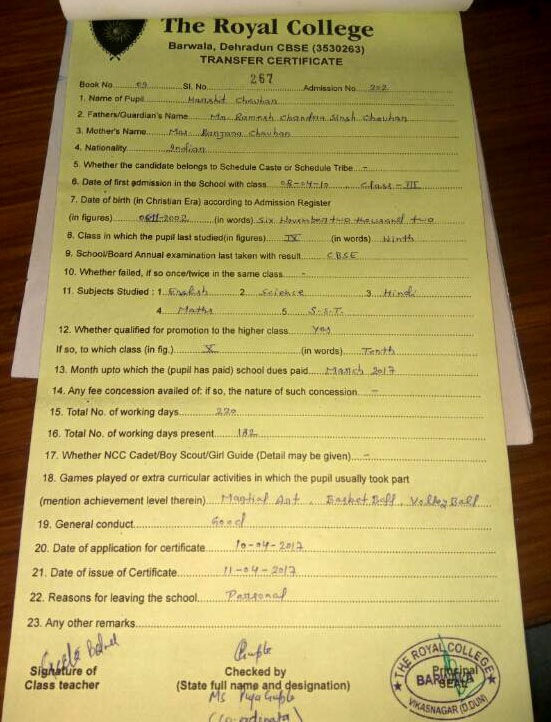 The Royal College
Barwala, Dehradun CBSE (3530263)
TRANSFER CERTIFICATE
Book No 09 Sl. No. 267 Admission No 202
1. Name of Pupil Harshit Chauhan
2. Fathers/Guardian's Name Mr. Ramesh Chandra Singh Chauhan
3. Mother's Name Mrs. Ranjana Chauhan
4. Nationality Indian
5. Whether the candidate belongs to Schedule Caste or Schedule Tribe -
6. Date of first admission in the School with class 08-04-10 Class-III
7. Date of birth (in Christian Era) according to Admission Register
(in figures) 06-11-2002 (in words) Six November two thousand two
8. Class in which the pupil last studied(in figures) IX (in words) Ninth
9. School/Board Annual examination last taken with result CBSE
10. Whether failed, if so once/twice in the same class -
11. Subjects Studied : 1 English 2 Science 3 Hindi
4 Maths 5 S.S.T.
12. Whether qualified for promotion to the higher class Yes
If so, to which class (in fig.) X (in words) Tenth
13. Month upto which the (pupil has paid) school dues paid March 2017
14. Any fee concession availed of: if so, the nature of such concession -
15. Total No. of working days 220
16. Total No. of working days present 182
17. Whether NCC Cadet/Boy Scout/Girl Guide (Detail may be given) -
18. Games played or extra curricular activities in which the pupil usually took part
(mention achievement level therein) Martial Art, Basket Ball, Volley Ball
19. General conduct Good
20. Date of application for certificate 10-04-2017
21. Date of issue of Certificate 11-04-2017
22. Reasons for leaving the school Personal
23. Any other remarks
Signature of Checked by Principal
Class teacher (State full name and designation) SEAL
Ms Puja Gupta
(Co-ordinator)
THE ROYAL COLLEGE
BARWALA
VIKASNAGAR (D.DUN)